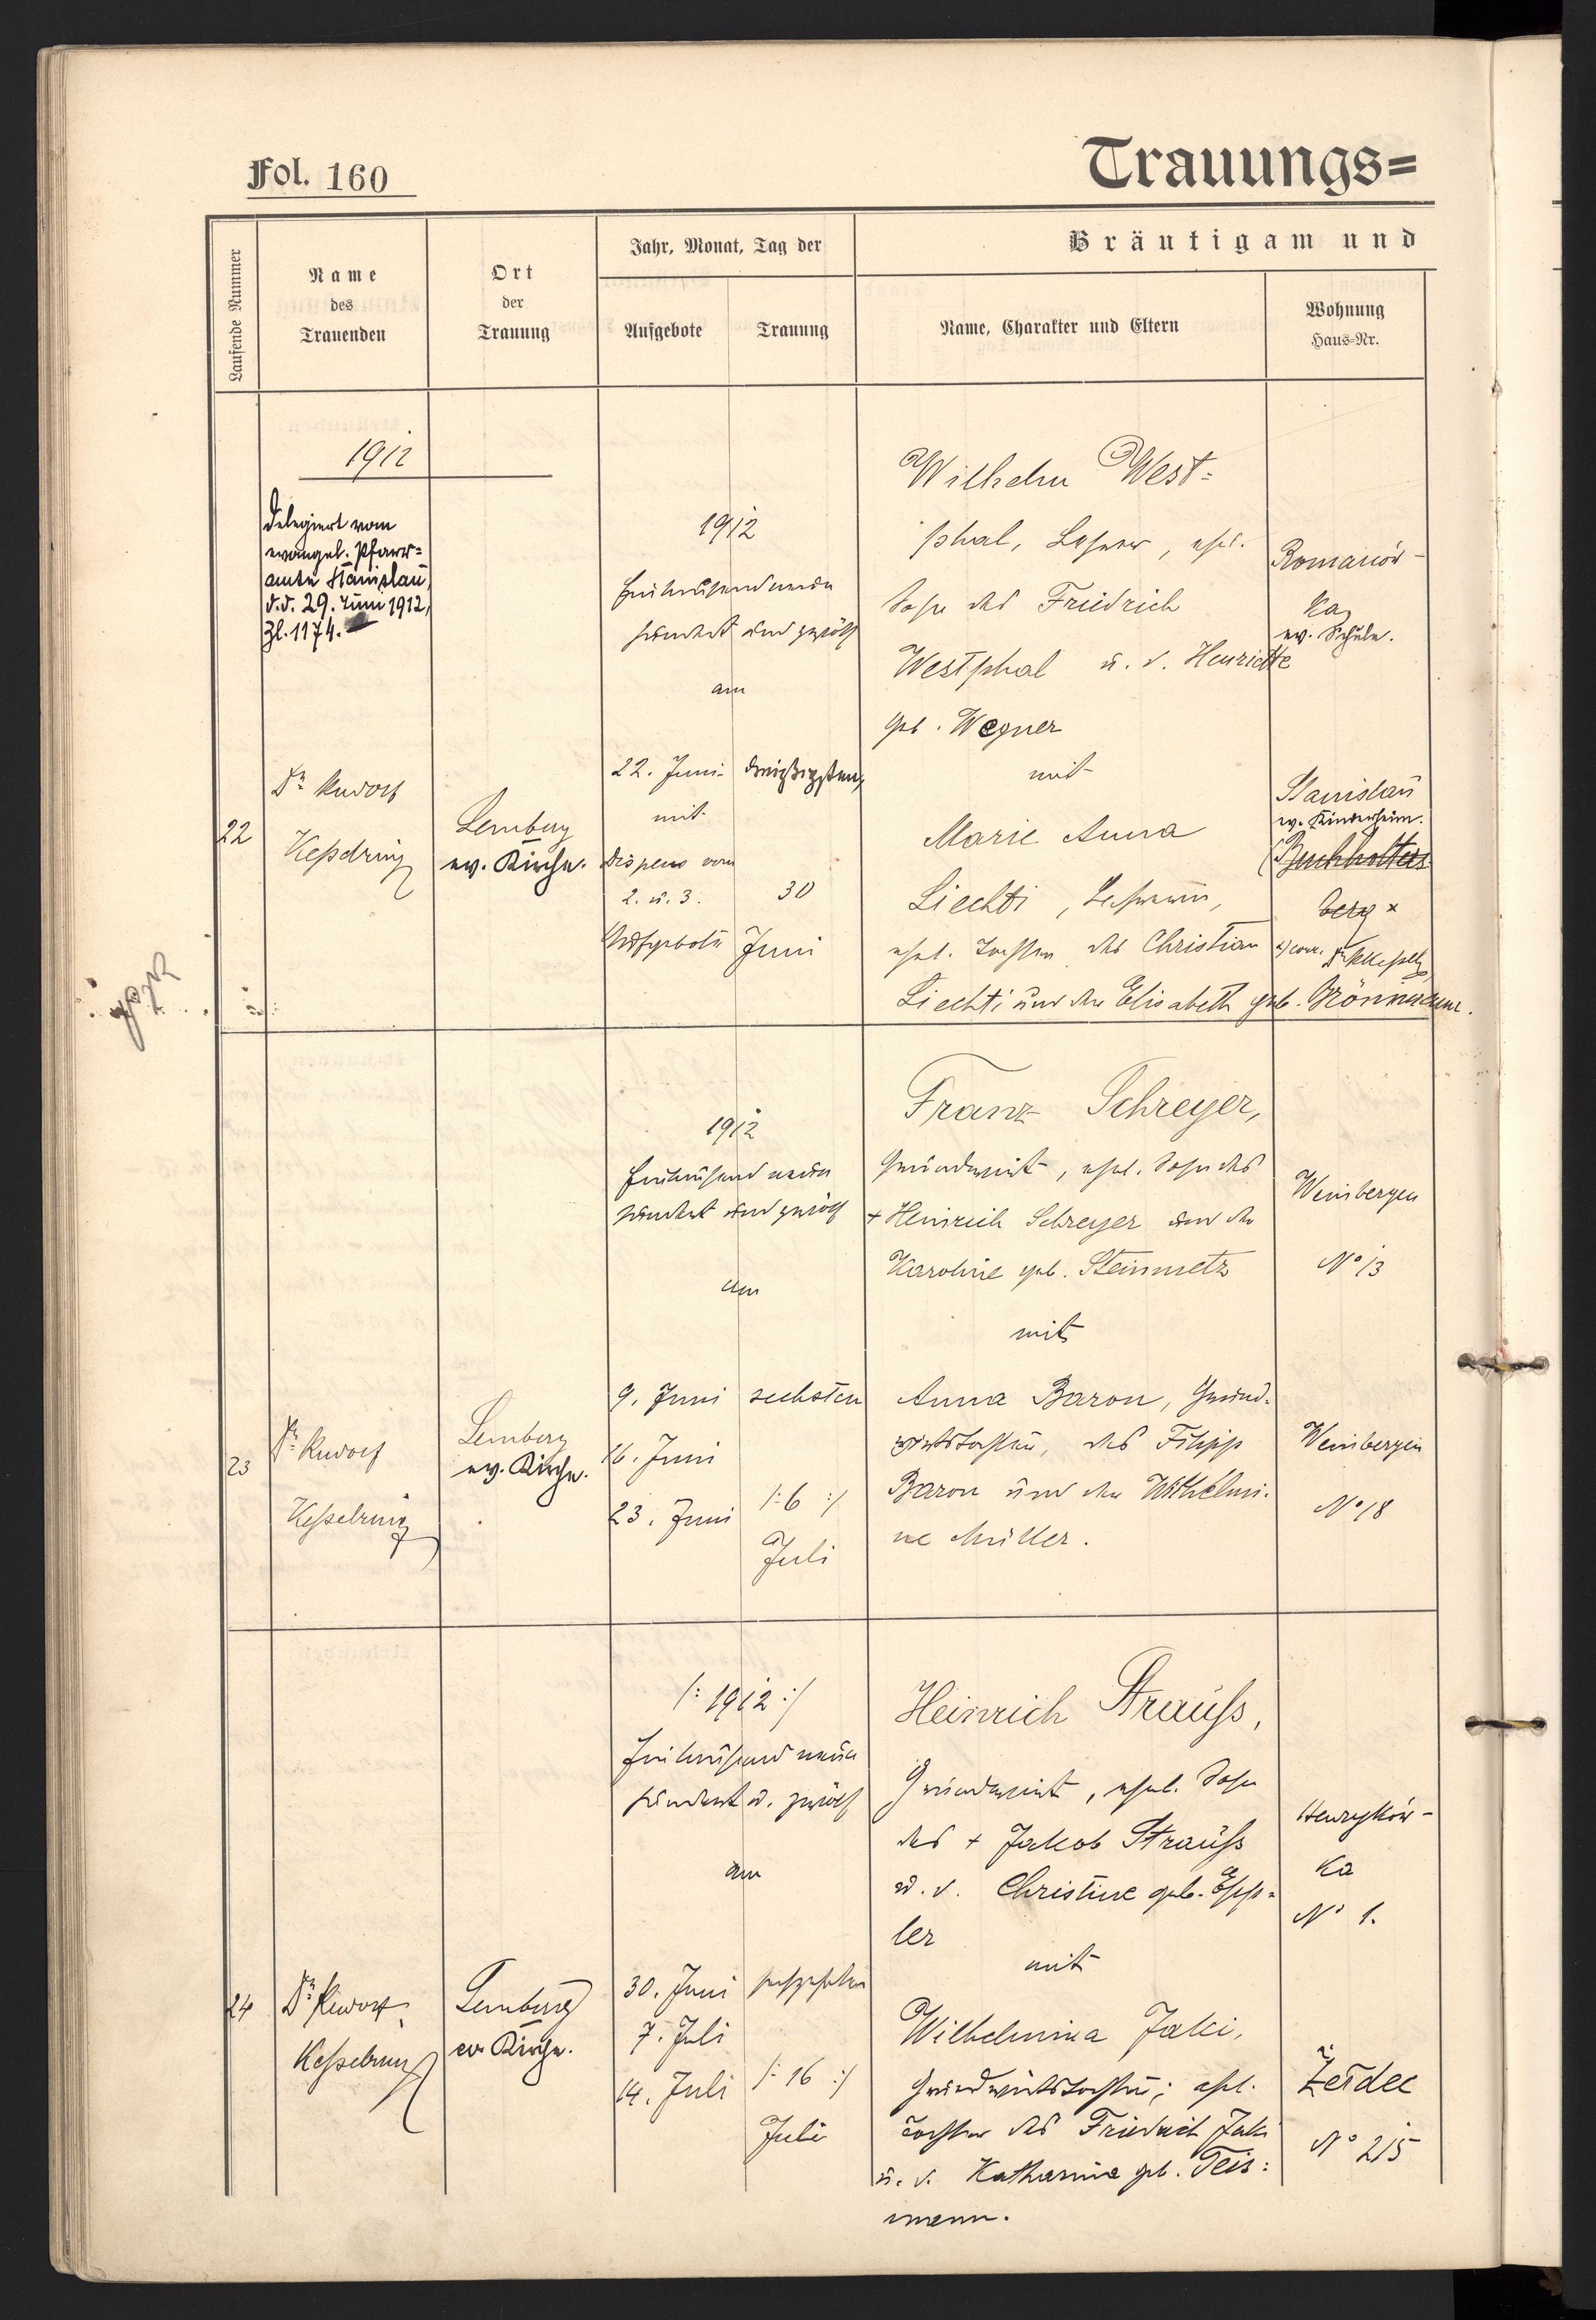 Fol. 160
Trauungs=
Laufende Nummer
Name
des
Trauenden
Ort
der
Trauung
Jahr, Monat, Tag der
Aufgebote
Trauung
Bräutigam und
Name, Charakter und Eltern
Wohnung
Haus=Nr.
1912
Delegiert vom
evangel. Pfarr=
amte Stanislau,
d.d. 29. Juni 1912,
Zl. 1174.
22
Dr Rudolf
Keßelring
Lemberg
ev. Kirche.
1912
Eintausend neun
hundert und zwölf
am
22. Juni
mit
Dispens vom
2. u. 3.
Aufgebote
dreißigsten,
30
Juni
Wilhelm West=
phal, Lehrer, ehel.
Sohn des Friedrich
Westphal u. d. Henriette
geb. Wegner
mit
Marie Anna
Liechti, Lehrerin,
ehel. Tochter des Christian
Liechti und der Elisabeth geb.
Romanów=
ka
ev. Schule.
Stanislau
ev. Kinderheim.
(Buchholters
berg x
23
Dr Rudolf
Kesselring
Lemberg
ev. Kirche.
1912
Eintausend neun
hundert und zwölf
am
9. Juni
16. Juni
23. Juni
sechsten
/: 6 :/
Juli
Franz Schreyer,
Grundwirt, ehel. Sohn des
+ Heinrich Schreyer und der
Karoline geb. Steinmetz
mit
Anna Baron, Grund=
wirtstochter, des Filipp
Baron und der Wilhelmi=
ne Müller.
Weinbergen
No 13
Weinbergen
No 18
24
Dr Rudolf
Kesselring
Lemberg
ev. Kirche.
/: 1912 :/
Eintausend neun
hundert u. zwölf
am
30. Juni
7. Juli
14. Juli
sechzehnten
/: 16 :/
Juli
Heinrich Strauß,
Grundwirt, ehel. Sohn
des + Jakob Strauß
u. d. Christine geb. Epp=
ler
mit
Wilhelmina Jaki,
Grundwirtstochter; ehel.
Tochter des Friedrich Jaki
u. d. Katharina geb. Teis=
mann.
Henryków=
ka
No 1.
No 215